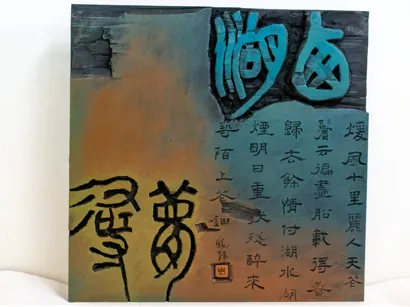 西湖
夢尋
煖風十里麗人天花
鬢云偏畫船載得春
歸去餘情付湖水湖
煙明日重扶殘醉來
尋陌上花鈿